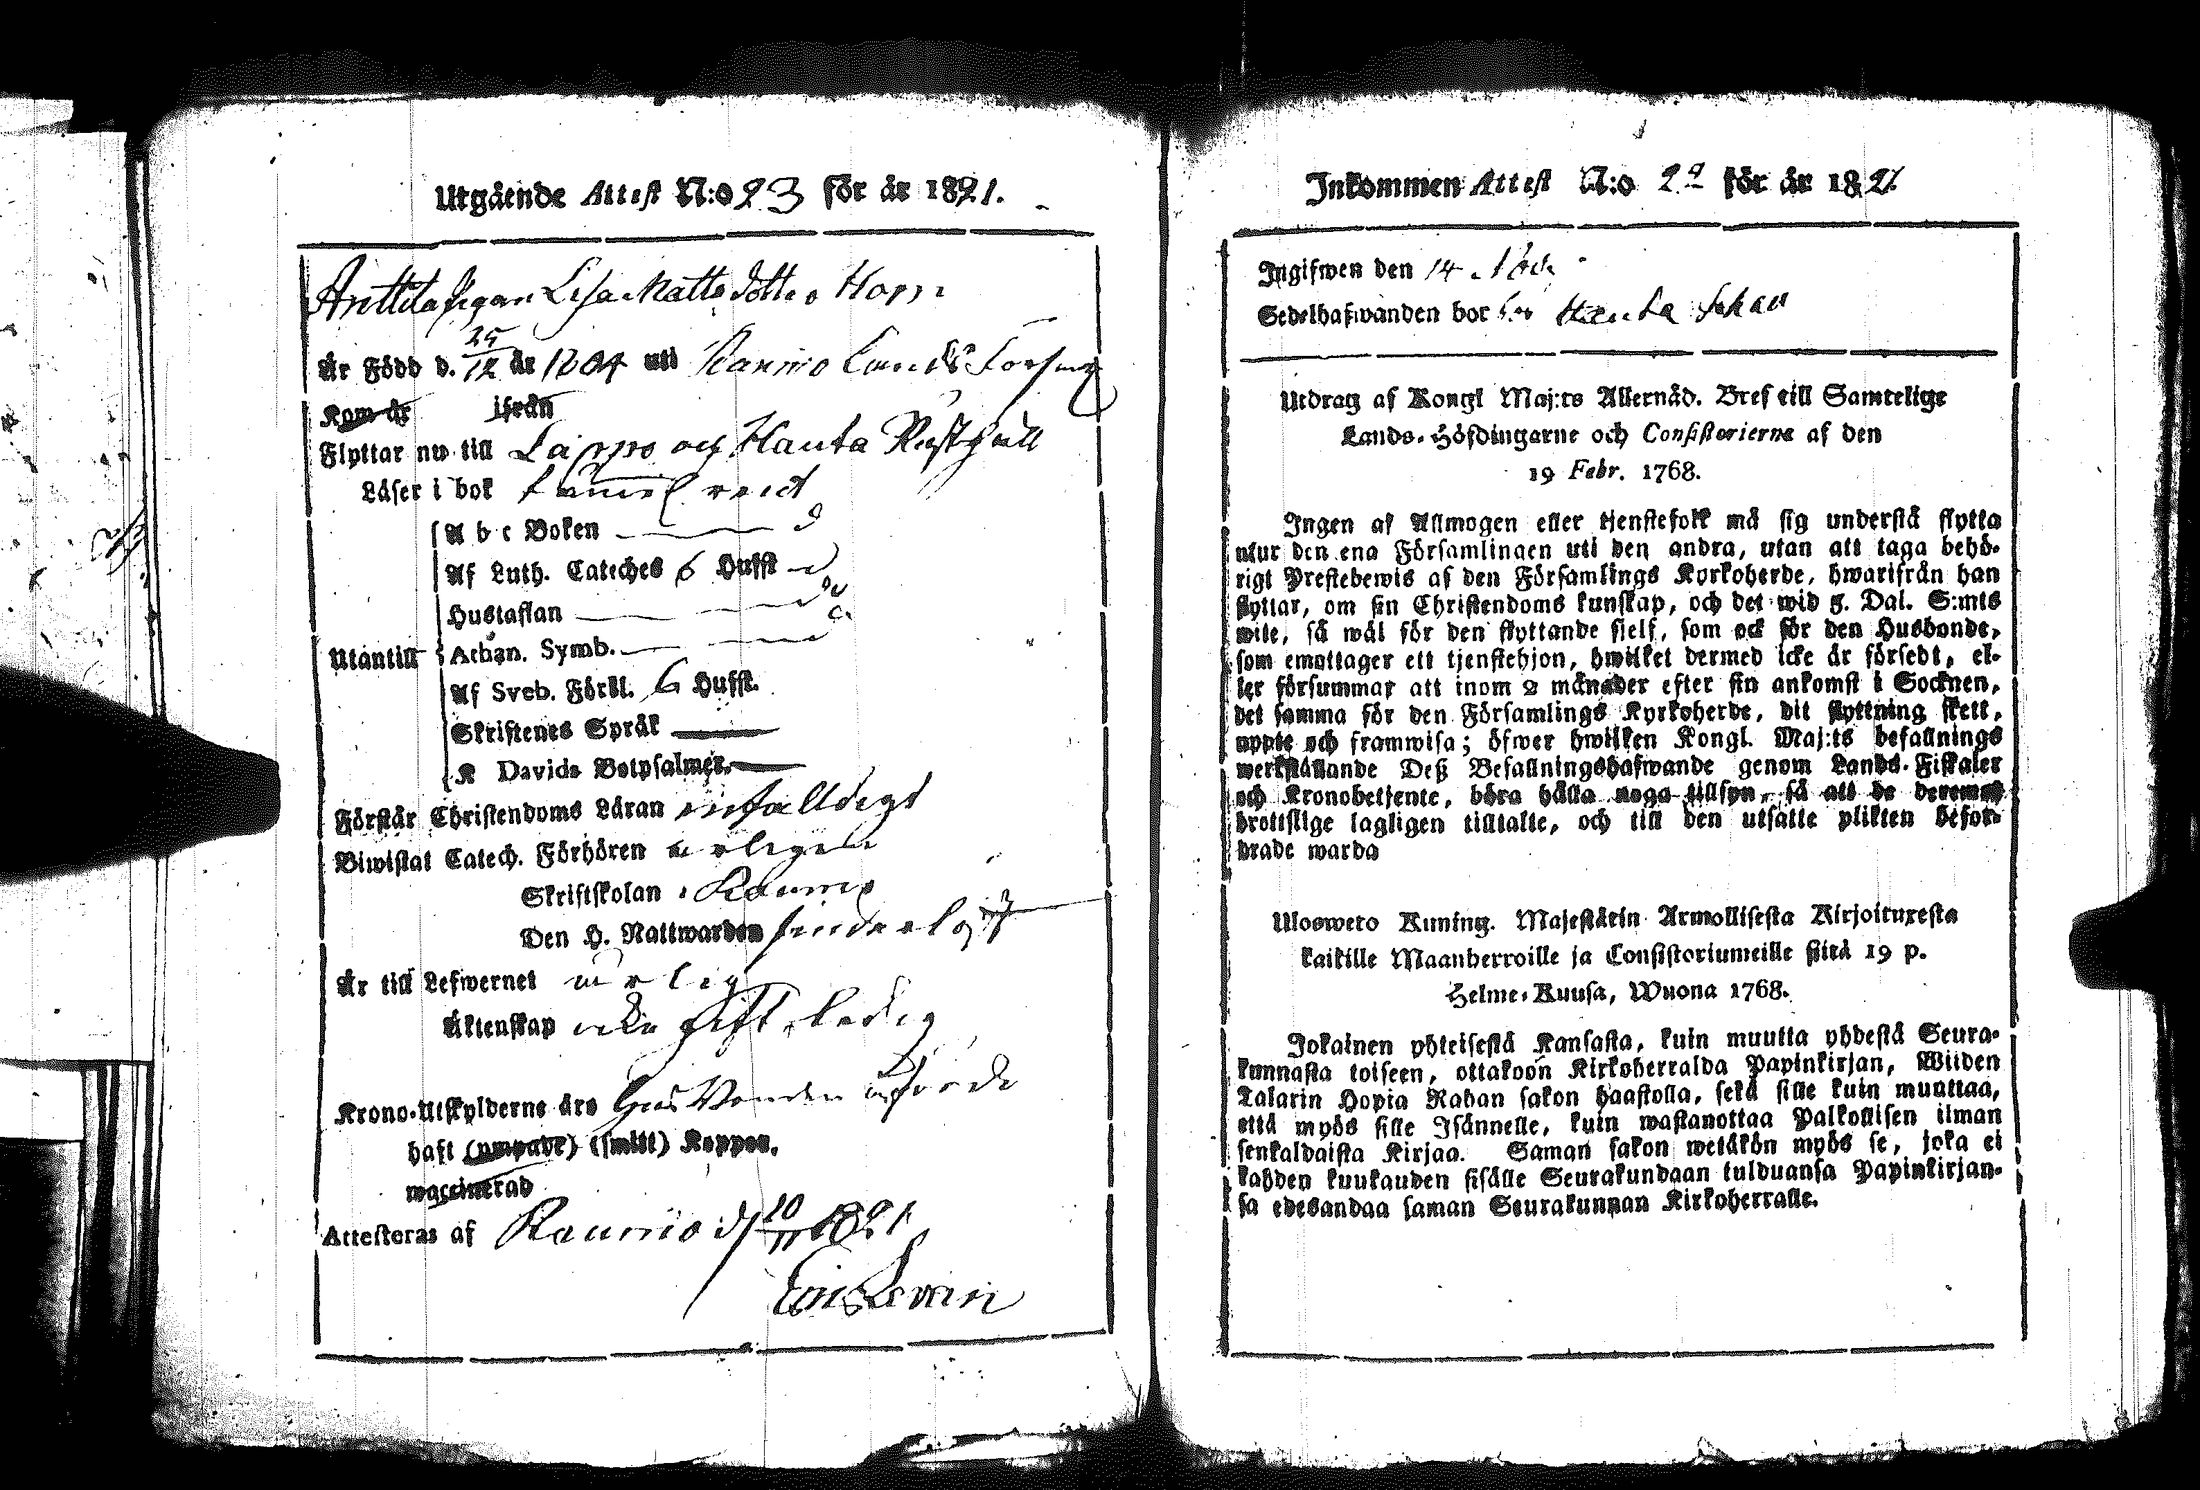 Utgående Attest N:o 23 för år 1821.
Anttila pigan Lisa Matts dotter
Är Född d. 25/12 år 1804 uti Raumo Lands Församl
Kom år ifrån
Flyttar nu till Lappo och Hauta Rusthåll
Läser i bok
Utantill
A b c Boken
Af Luth. Cateches 6 Hufst
Hustaflan
Athan. Symb.
Af Sveb. Förkl. 6 Hufst.
Skriftenes Språk
K Davids Botpsalmer.
Förstår Christendoms Läran enfalldigt
Biwistat Catech. Förhören årligen
Skriftskolan i Raumo
Den H. Nattwarden
Är till Lefwernet ärlig
Äktenskap icke gift, ledig
Krono-Utskylderne äro
haft (umpade) (smitt) Koppor.
waccinerad
Attesteras af Raumo d 10/11 1821
Eric Levin
Inkommen Attest N:o 22 för år 1821
Ingifwen den 14 Nov.
Sedelhafwanden bor Hauta
Utdrag af Kongl Maj:ts Allernåd. Bref till Samtelige
Lands-Höfdingarne och Consistorierne af den
19 Febr. 1768.
Ingen af Allmogen eller tjenstefolk må sig understå flytta
utur den ena Församlingen uti den andra, utan att taga behö-
rigt Prestebewis af den Församlings Kyrkoherde, hwarifrån han
flyttar, om sin Christendoms kunskap, och det wid 5. Dal. S:mts
wite, så wäl för den flyttande sjelf, som ock för den Husbonde,
som emottager ett tjenstehjon, hwilket dermed icke är försedt, el-
ler försummar att inom 2 månader efter sin ankomst i Socknen,
det samma för den Församlings Kyrkoherde, dit flyttning skett,
uppte och framwisa; öfwer hwilken Kongl. Maj:ts befallnings
werkställande Deß Befallningshafwande genom Lands-Fiskaler
och Kronobetjente, böra hålla noga tillsyn, så att de deremot
brottslige lagligen tilltalte, och till den utsatte plikten befor-
drade warda
Uloswero Kuning. Majestätin Armollisesta Kirjoituxesta
kaikille Maanherroille ja Consistoriumeille siitä 19 p.
Helme-Kuusa, Wuona 1768.
Jokainen yhteisestä Kansasta, kuin muutta yhdestä Seura-
kunnasta toiseen, ottakoon Kirkoherralda Papinkirjan, Wiiden
Talarin Hopia Rahan sakon haastolla, sekä sille kuin muuttaa,
että myös sille Isännelle, kuin wastanottaa Palkollisen ilman
senkaldaista Kirjaa. Saman sakon wetäkön myös se, joka ei
kahden kuukauden sisälle Seurakundaan tulduansa Papinkirjan-
sa edesandaa saman Seurakunnan Kirkoherralle.